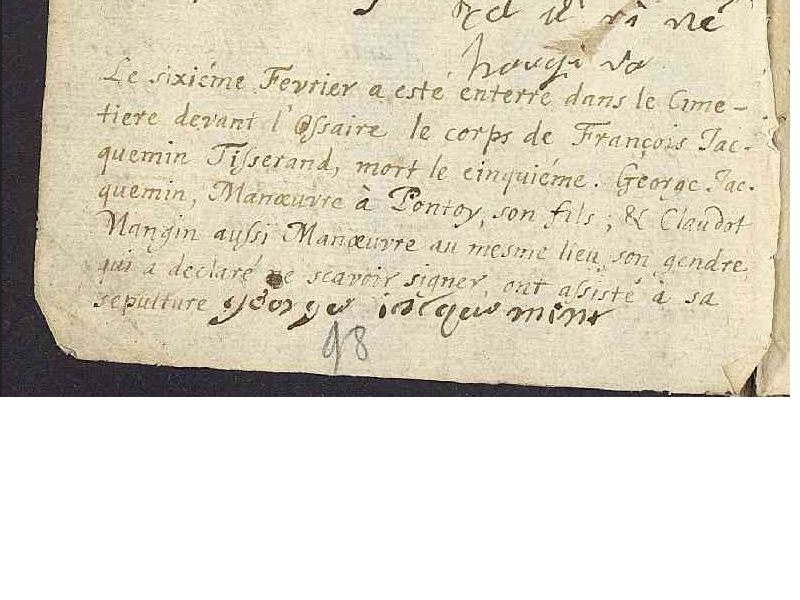 Le sixiéme Fevrier a esté enterré dans le Cime-
tiere devant l'Ossaire le corps de François Jac-
quemin Tisserand, mort le cinquiéme. George Jac-
quemin, Manœuvre à Pontoy, son fils ; & Claudot
Mangin aussi Manœuvre au mesme lieu son gendre
qui a declaré ne scavoir signer, ont assisté à sa
sepulture George iacquemin
98